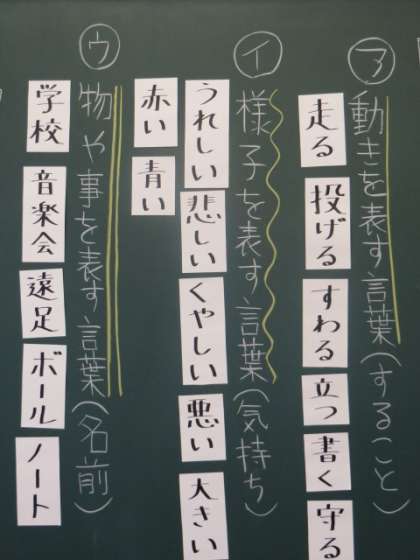 ア
動きを表す言葉(すること)
走る
投げる
すわる
立つ
書く
守る
イ
様子を表す言葉(気持ち)
うれしい
悲しい
くやしい
悪い
大きい
赤い
青い
ウ
物や事を表す言葉(名前)
学校
音楽会
遠足
ボール
ノート